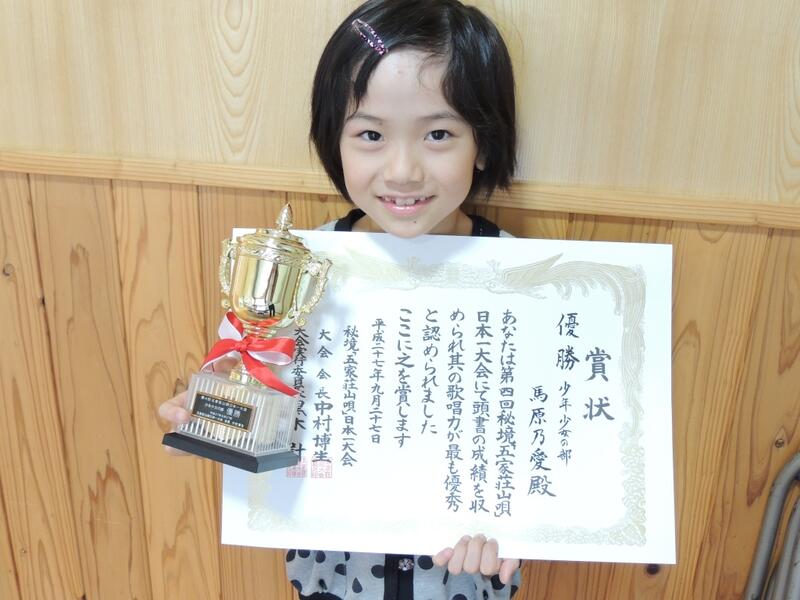 賞状
優勝 少年少女の部
馬原乃愛殿
あなたは第四回秘境「五家荘山唄」
日本一大会にて頭書の成績を収
められ其の歌唱力が最も優秀
と認められました
ここに之を賞します
平成二十七年九月二十七日
秘境「五家荘山唄」日本一大会
大会会長 中村博生
大会実行委員長 黒木
優勝